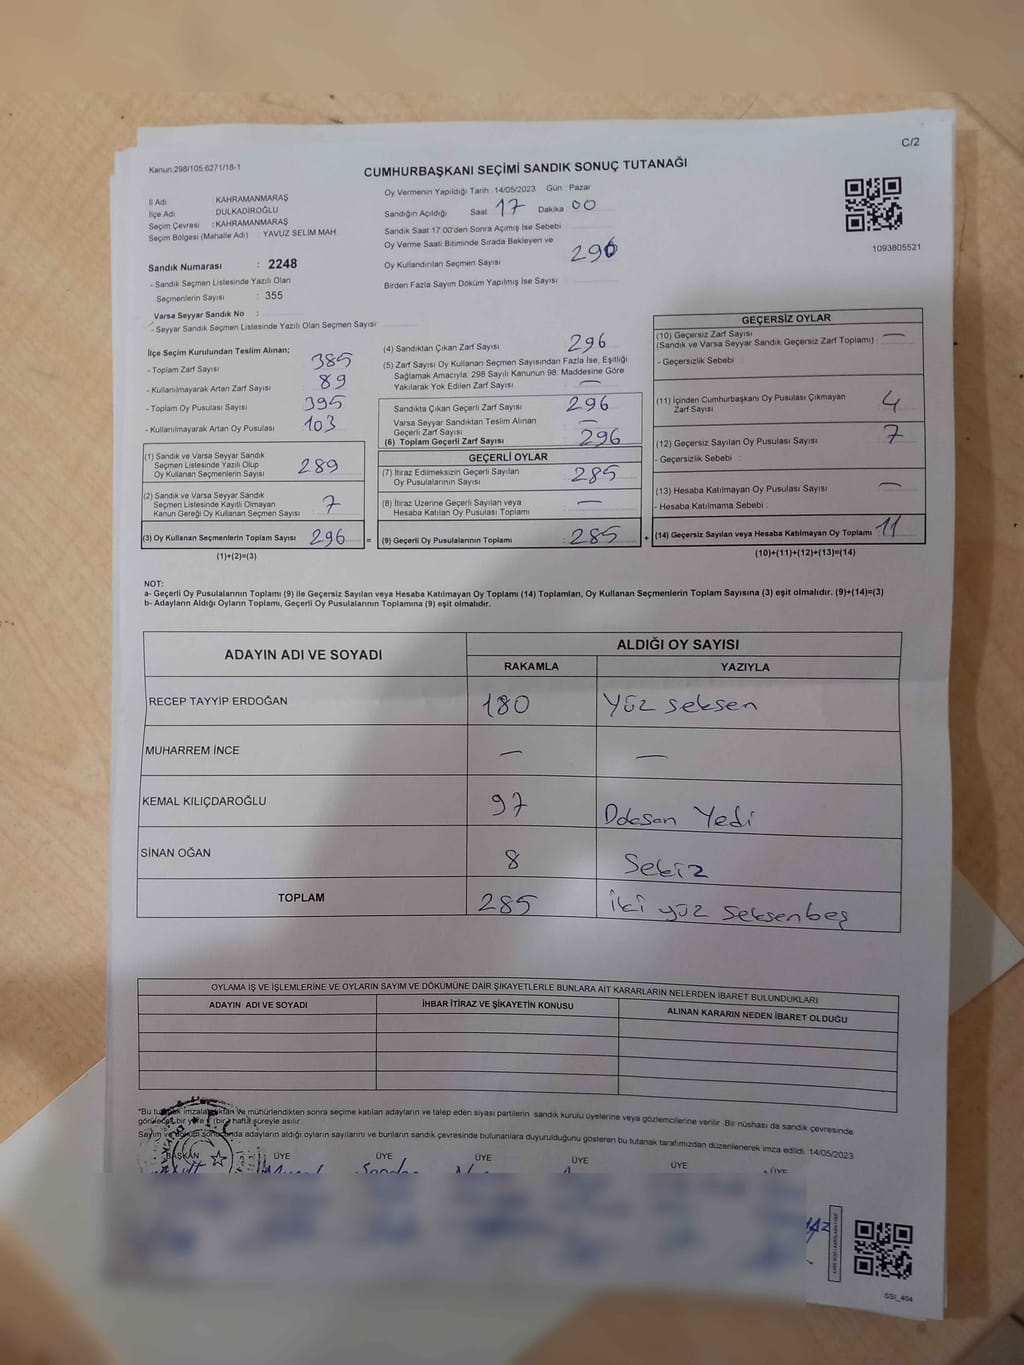 C/2
Kanun:298/105.6271/18-1
CUMHURBAŞKANI SEÇİMİ SANDIK SONUÇ TUTANAĞI
İl Adı KAHRAMANMARAŞ
İlçe Adı DULKADİROĞLU
Seçim Çevresi : KAHRAMANMARAŞ
Seçim Bölgesi (Mahalle Adı) : YAVUZ SELİM MAH
Oy Vermenin Yapıldığı Tarih 14/05/2023 Gün Pazar
Sandığın Açıldığı Saat 17 Dakika 00
Sandık Saat 17:00'den Sonra Açımış İse Sebebi
Oy Verme Saati Bitiminde Sırada Bekleyen ve
Oy Kullandırılan Seçmen Sayısı 296
Birden Fazla Sayım Döküm Yapılmış İse Sayısı
1093805521
Sandık Numarası : 2248
- Sandık Seçmen Listesinde Yazılı Olan
Seçmenlerin Sayısı : 355
Varsa Seyyar Sandık No :
- Seyyar Sandık Seçmen Listesinde Yazılı Olan Seçmen Sayısı
İlçe Seçim Kurulundan Teslim Alınan;
- Toplam Zarf Sayısı 385
- Kullanılmayarak Artan Zarf Sayısı 89
- Toplam Oy Pusulası Sayısı 395
- Kullanılmayarak Artan Oy Pusulası 103
(1) Sandık ve Varsa Seyyar Sandık
Seçmen Listesinde Yazılı Olup
Oy Kullanan Seçmenlerin Sayısı 289
(2) Sandık ve Varsa Seyyar Sandık
Seçmen Listesinde Kayıtlı Olmayan
Kanun Gereği Oy Kullanan Seçmen Sayısı 7
(3) Oy Kullanan Seçmenlerin Toplam Sayısı 296 =
(1)+(2)=(3)
(4) Sandıktan Çıkan Zarf Sayısı 296
(5) Zarf Sayısı Oy Kullanan Seçmen Sayısından Fazla İse, Eşitliği
Sağlamak Amacıyla, 298 Sayılı Kanunun 98. Maddesine Göre
Yakılarak Yok Edilen Zarf Sayısı —
Sandıkta Çıkan Geçerli Zarf Sayısı 296
Varsa Seyyar Sandıktan Teslim Alınan
Geçerli Zarf Sayısı —
(6) Toplam Geçerli Zarf Sayısı 296
GEÇERLİ OYLAR
(7) İtiraz Edilmeksizin Geçerli Sayılan
Oy Pusulalarının Sayısı 285
(8) İtiraz Üzerine Geçerli Sayılan veya
Hesaba Katılan Oy Pusulası Toplamı —
(9) Geçerli Oy Pusulalarının Toplamı : 285 +
GEÇERSİZ OYLAR
(10) Geçersiz Zarf Sayısı —
(Sandık ve Varsa Seyyar Sandık Geçersiz Zarf Toplamı)
- Geçersizlik Sebebi
(11) İçinden Cumhurbaşkanı Oy Pusulası Çıkmayan
Zarf Sayısı 4
(12) Geçersiz Sayılan Oy Pusulası Sayısı 7
- Geçersizlik Sebebi :
(13) Hesaba Katılmayan Oy Pusulası Sayısı —
- Hesaba Katılmama Sebebi :
(14) Geçersiz Sayılan veya Hesaba Katılmayan Oy Toplamı 11
(10)+(11)+(12)+(13)=(14)
NOT:
a- Geçerli Oy Pusulalarının Toplamı (9) ile Geçersiz Sayılan veya Hesaba Katılmayan Oy Toplamı (14) Toplamları, Oy Kullanan Seçmenlerin Toplam Sayısına (3) eşit olmalıdır. (9)+(14)=(3)
b- Adayların Aldığı Oyların Toplamı, Geçerli Oy Pusulalarının Toplamına (9) eşit olmalıdır.
ADAYIN ADI VE SOYADI ALDIĞI OY SAYISI
RAKAMLA YAZIYLA
RECEP TAYYİP ERDOĞAN 180 Yüz seksen
MUHARREM İNCE — —
KEMAL KILIÇDAROĞLU 97 Doksan Yedi
SİNAN OĞAN 8 Sekiz
TOPLAM 285 İki yüz seksenbeş
OYLAMA İŞ VE İŞLEMLERİNE VE OYLARIN SAYIM VE DÖKÜMÜNE DAİR ŞİKAYETLERLE BUNLARA AİT KARARLARIN NELERDEN İBARET BULUNDUKLARI
ADAYIN ADI VE SOYADI İHBAR İTİRAZ VE ŞİKAYETİN KONUSU ALINAN KARARIN NEDEN İBARET OLDUĞU
*Bu tutanak imzalandıktan ve mühürlendikten sonra seçime katılan adayların ve talep eden siyasi partilerin sandık kurulu üyelerine veya gözlemcilerine verilir. Bir nüshası da sandık çevresinde
görülecek bir yere 1 (bir) hafta süreyle asılır.
Sayım ve döküm sonucunda adayların aldığı oyların sayılarını ve bunların sandık çevresinde bulunanlara duyurulduğunu gösteren bu tutanak tarafımızdan düzenlenerek imza edildi. 14/05/2023
BAŞKAN ÜYE ÜYE ÜYE ÜYE ÜYE ÜYE
SSİ_404